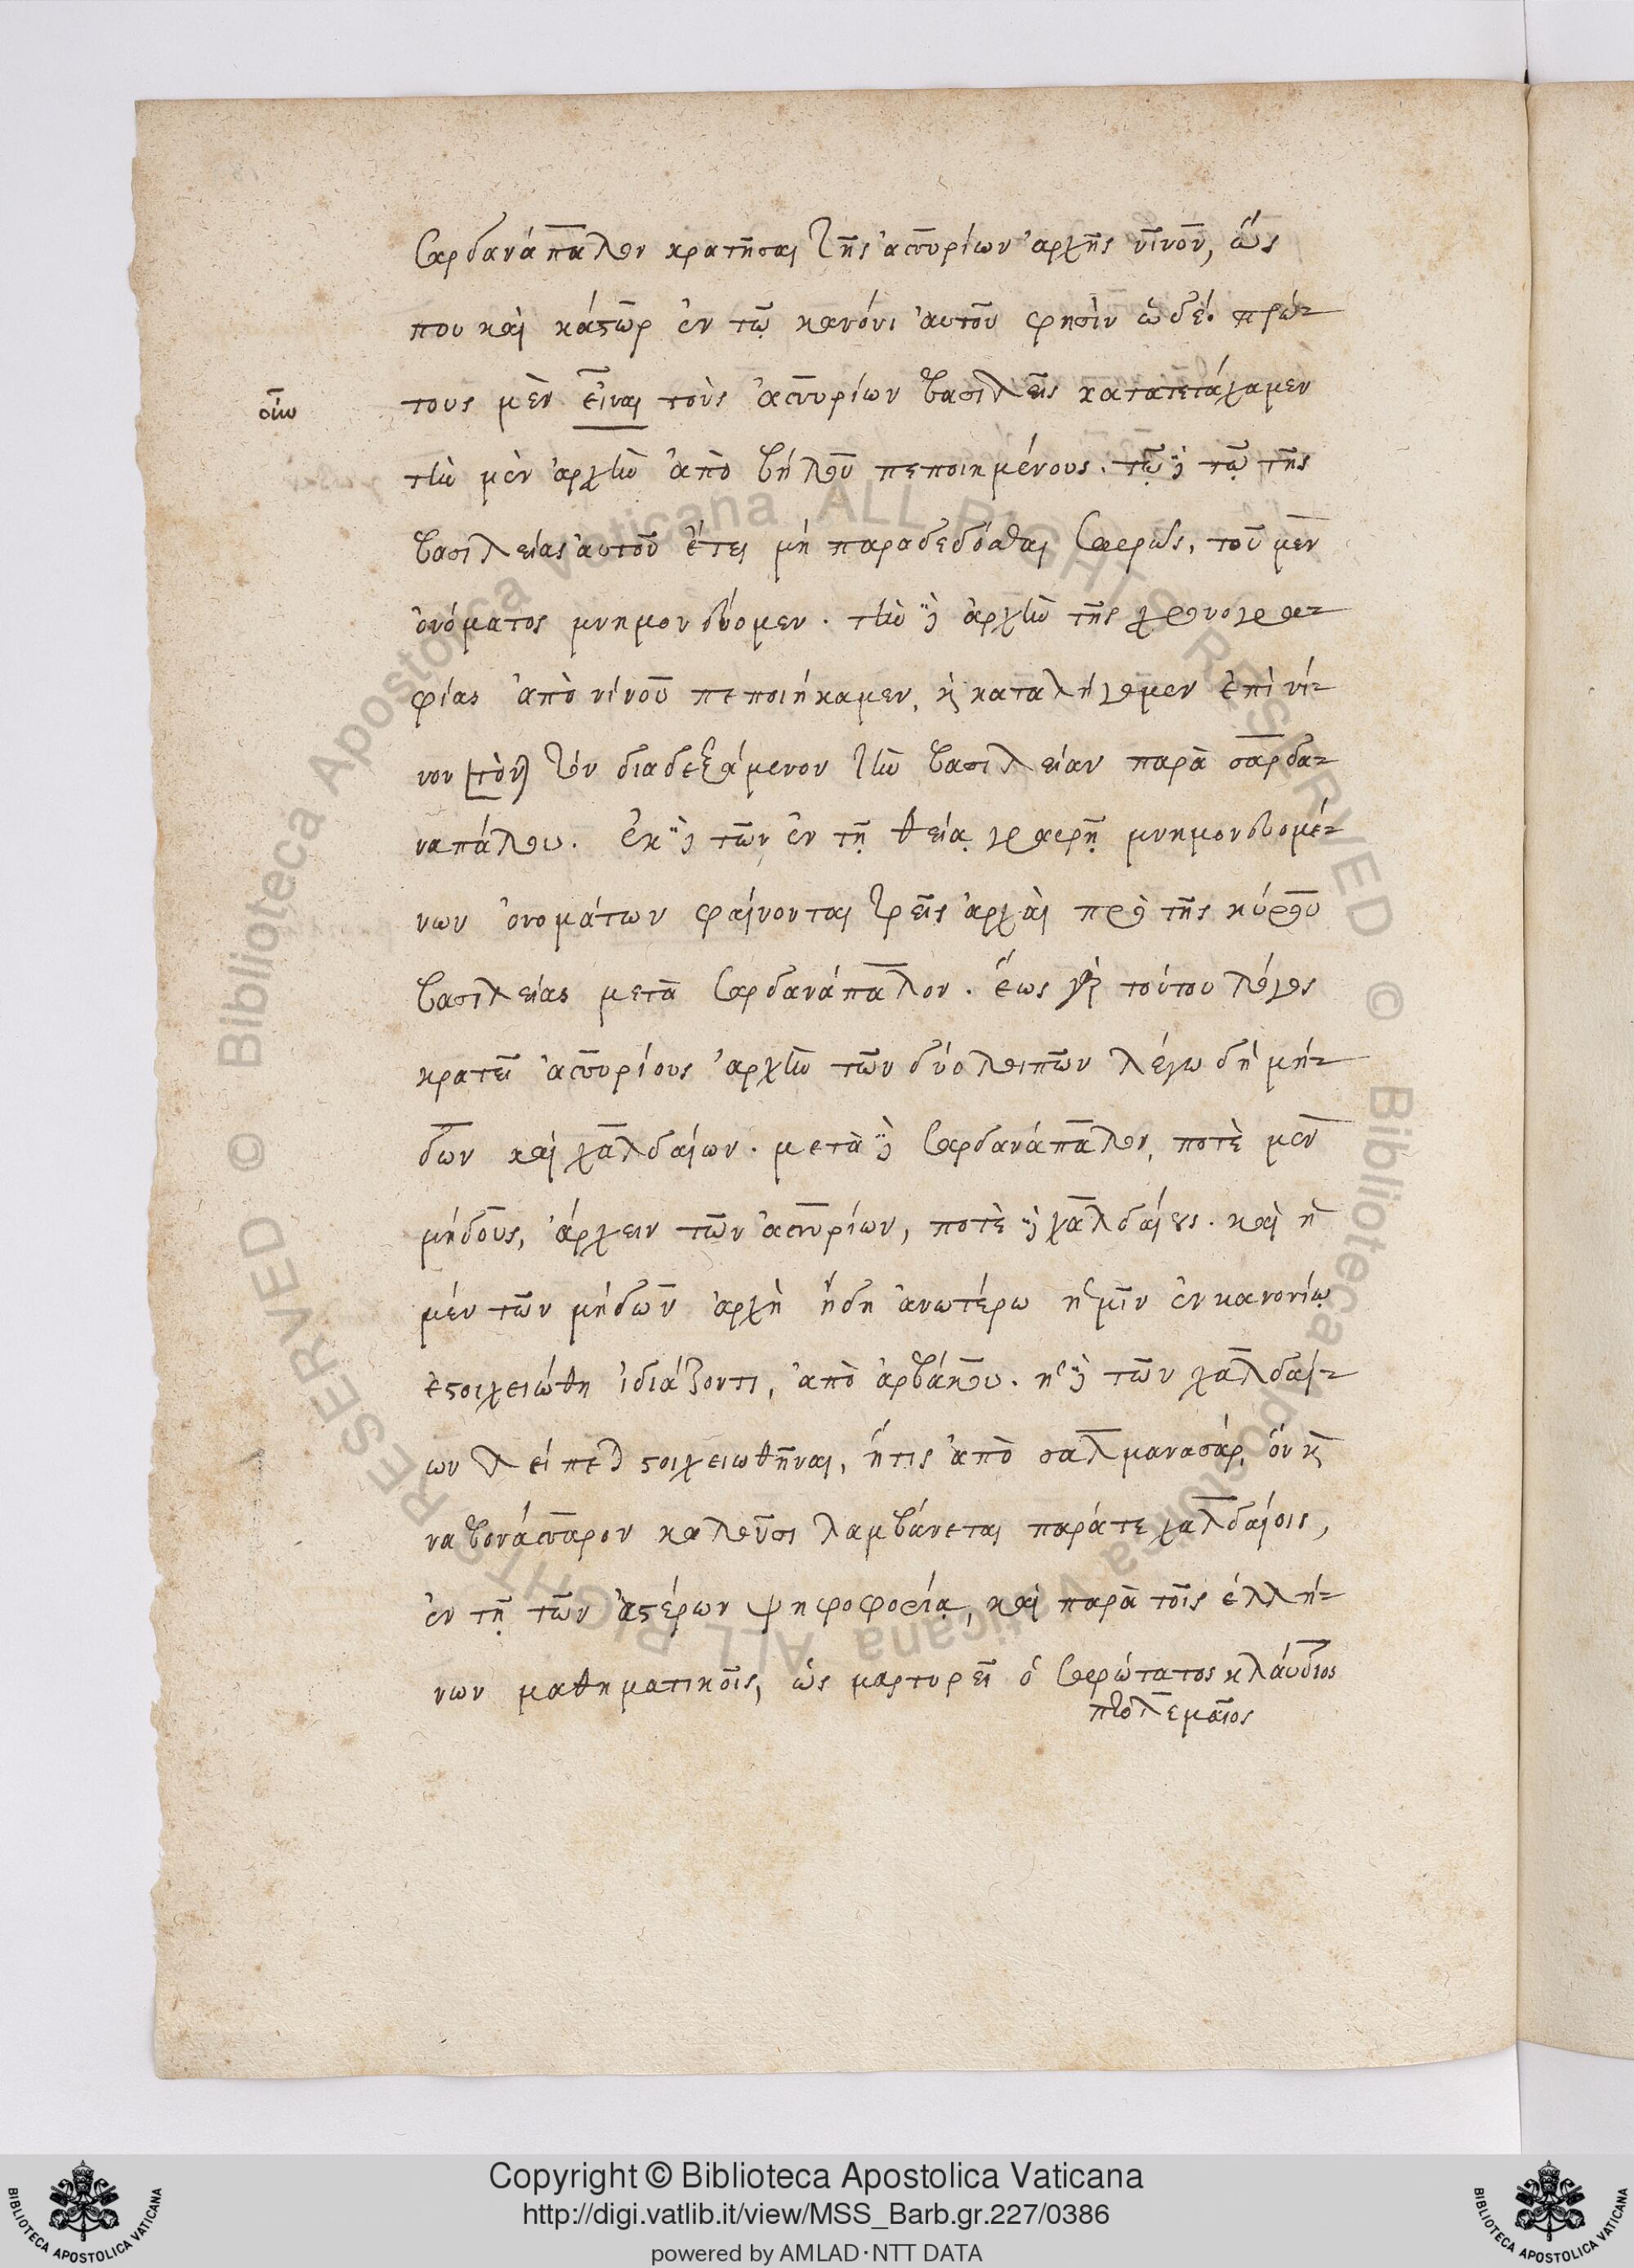 Σαρδανάπαλον κρατῆσαι τῆς ἀσσυρίων ἀρχῆς νῖνον, ὥς
που καὶ κάστωρ ἐν τῷ κανόνι αὐτοῦ φησὶν ὧδέ. πρώ-
τους μὲν εἶναι τοὺς ἀσσυρίων βασιλεῖς κατατετάχαμεν
οἶμ
τὴν μὲν ἀρχὴν ἀπὸ βήλου πεποιημένους. τῷ δὲ τῷ τῆς
βασιλείας αὐτοῦ ἔτει μὴ παραδεδόσθαι σαφῶς, τοῦ μὲν
ὀνόματος μνημονεύομεν. τὴν δὲ ἀρχὴν τῆς χρονογρα-
φίας ἀπὸ νίνου πεποιήκαμεν, καὶ καταλήγομεν ἐπὶ νί-
νον [τὸν] τὸν διαδεξάμενον τὴν βασιλείαν παρὰ σαρδα-
ναπάλου. ἐκ δὲ τῶν ἐν τῇ θείᾳ γραφῇ μνημονευομέ-
νων ὀνομάτων φαίνονται τρεῖς ἀρχαὶ πρὸ τῆς κύρου
βασιλείας μετὰ Σαρδανάπαλον. ἕως γὰρ τούτου λόγος
κρατεῖ ἀσσυρίους ἀρχὴν τῶν δύο λοιπῶν λέγω δὴ μή-
δων καὶ χαλδαίων. μετὰ δὲ Σαρδανάπαλον, ποτὲ μὲν
μήδους, ἄρχειν τῶν ἀσσυρίων, ποτὲ δὲ χαλδαίους. καὶ ἡ
μὲν τῶν μήδων ἀρχὴ ἤδη ἀνωτέρω ἡμῖν ἐν κανονίῳ
ἐστοιχειώθη ἰδιάζοντι, ἀπὸ ἀρβάκου. ἡ δὲ τῶν χαλδαί-
ων λείπει στοιχειωθῆναι, ἥτις ἀπὸ σαλμανασάρ, ὃν καὶ
ναβονάσσαρον καλοῦσι λαμβάνεται παρά τε χαλδαίοις,
ἐν τῇ τῶν ἀστέρων ψηφοφορίᾳ, καὶ παρὰ τοῖς ἑλλή-
νων μαθηματικοῖς, ὡς μαρτυρεῖ ὁ σοφώτατος κλαύδιος
πτολεμαῖος
Copyright © Biblioteca Apostolica Vaticana
http://digi.vatlib.it/view/MSS_Barb.gr.227/0386
powered by AMLAD·NTT DATA
BIBLIOTECA APOSTOLICA VATICANA
BIBLIOTECA APOSTOLICA VATICANA
© Biblioteca Apostolica Vaticana ALL RIGHTS RESERVED © Biblioteca Apostolica Vaticana ALL RIGHTS RESERVED